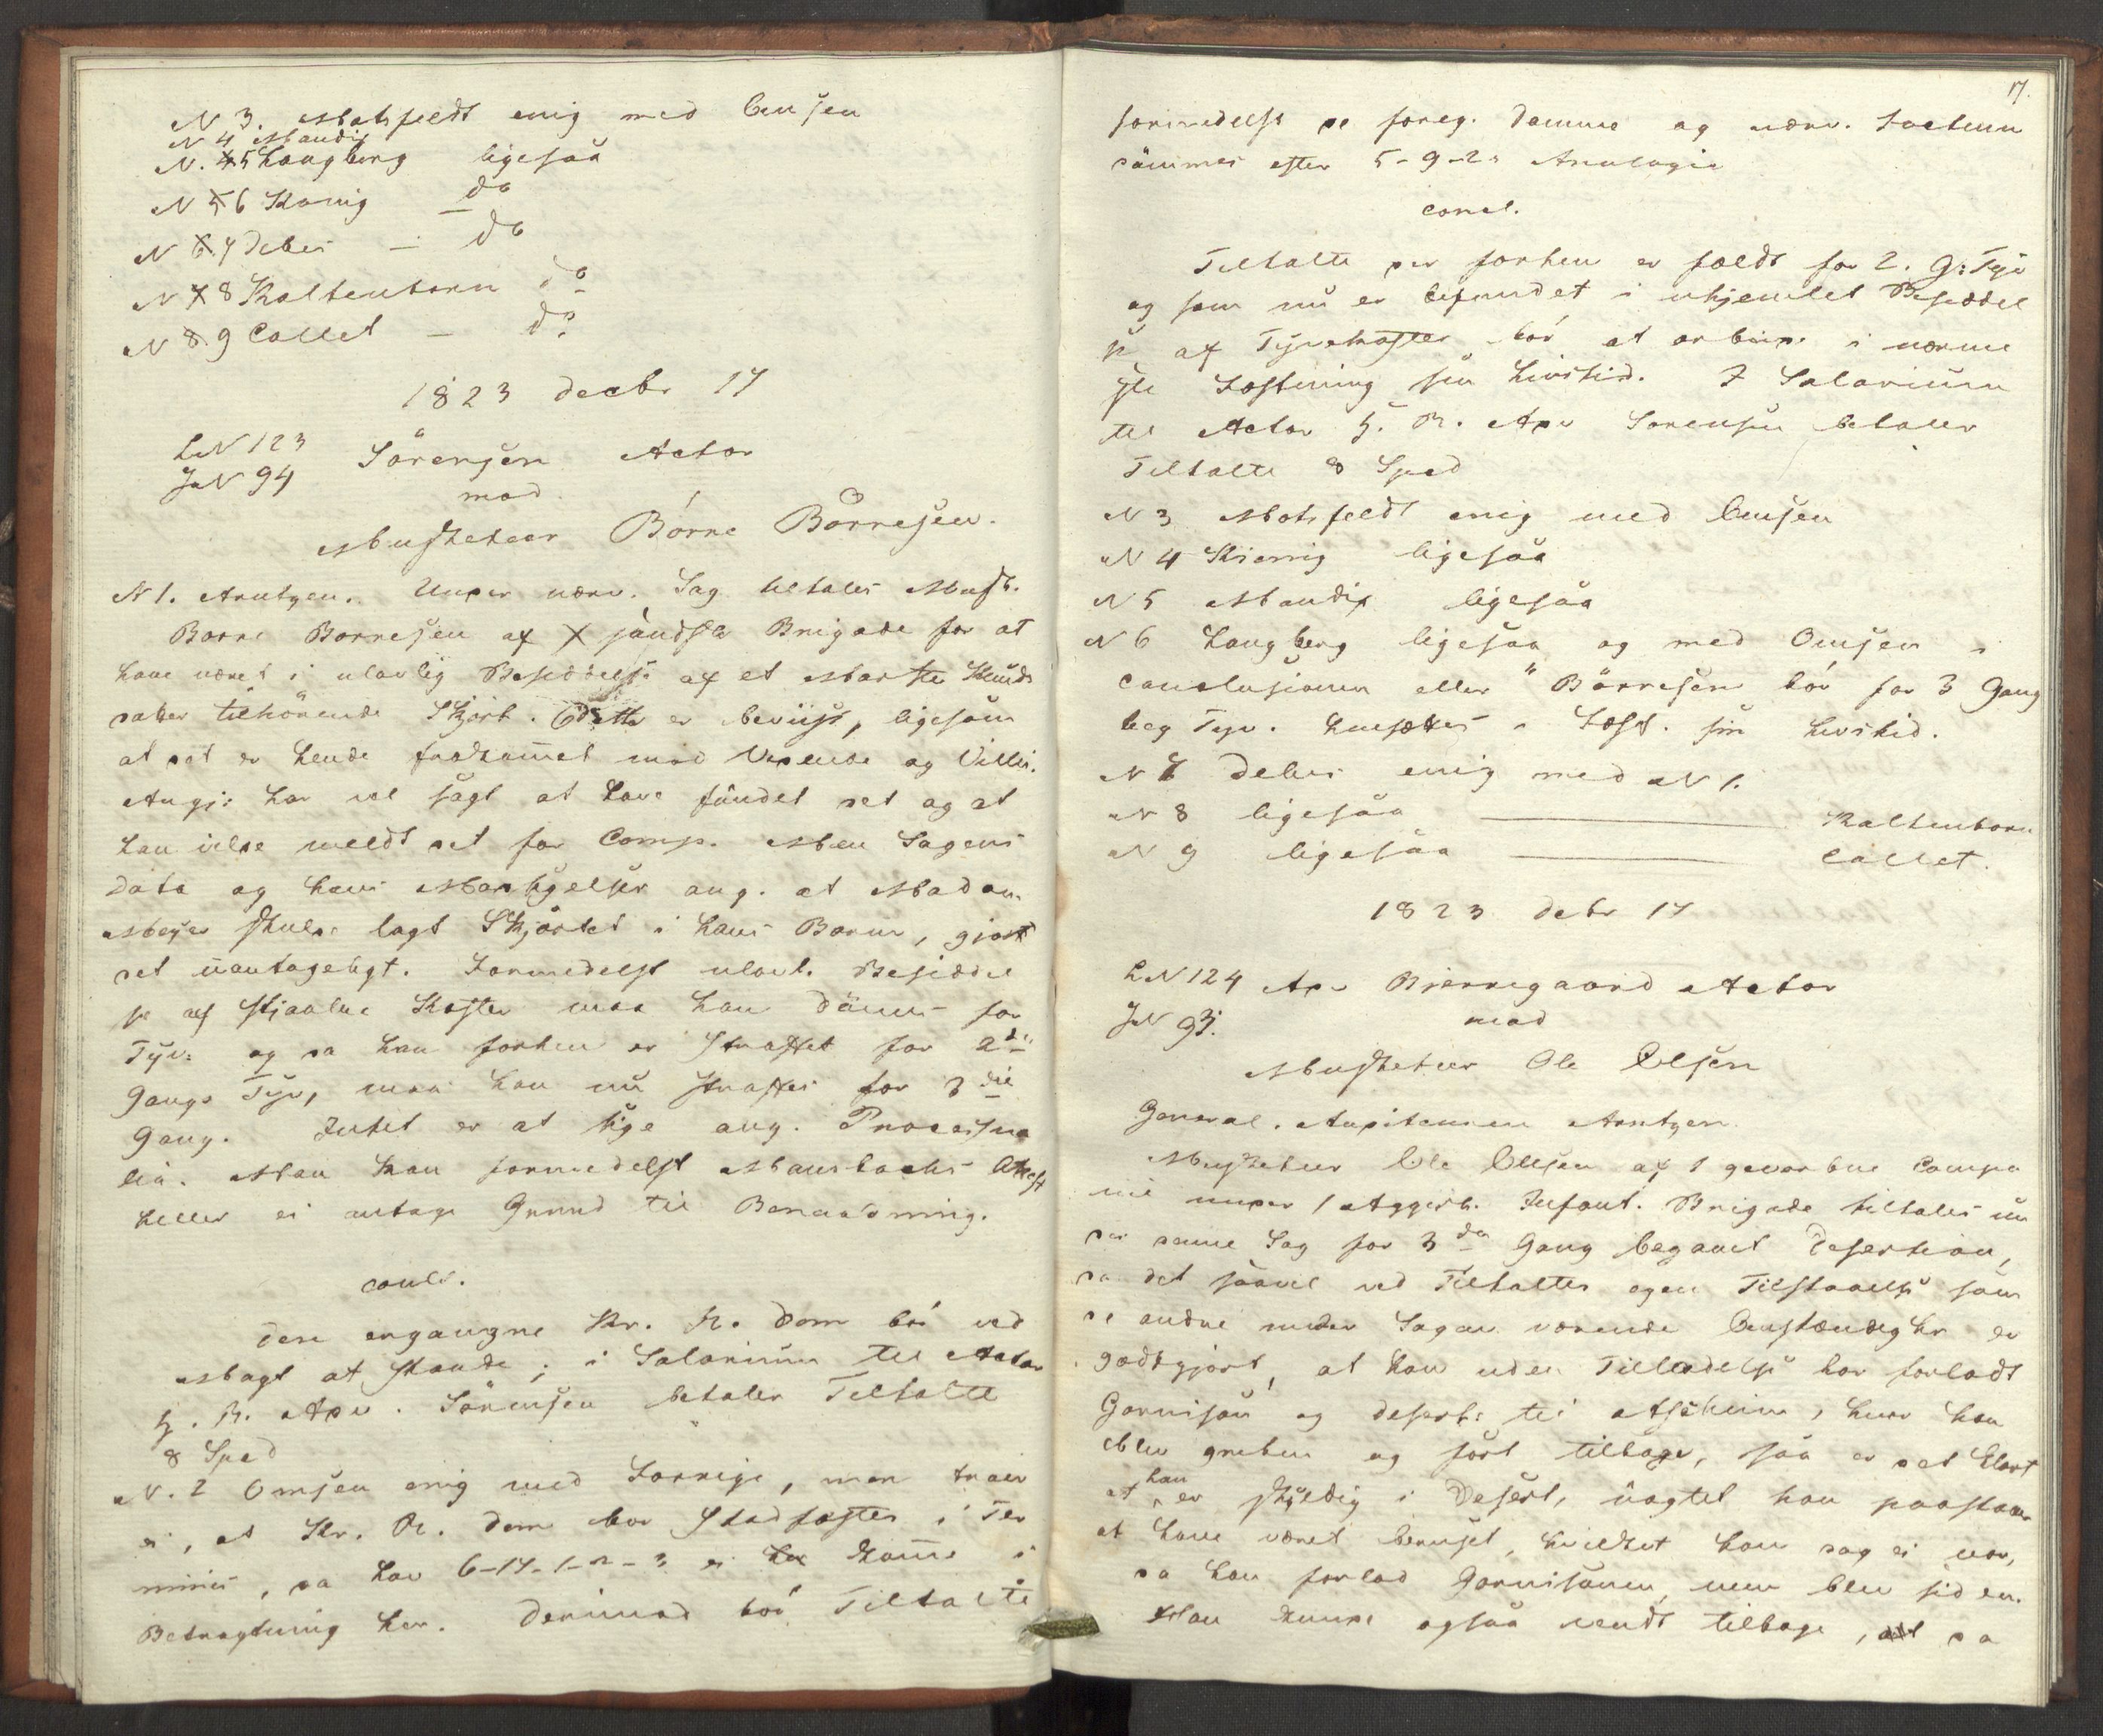 N 3. Motzfeldt enig med Omsen
N 4 Mandix
N. 5 Langberg ligesaa
N 6 Konig — do
N 7 Debes — do
N 8 Kaltenborn do
N 9 Collet — do
1823 decbr 17
LN 123
JN 94 Sörensen Actor
mod
Musketeer Börre Börresen.
N 1. Arntzen. Under nærv. Sag tiltales Musk.
Borre Borresen af jandske Brigade for at
have været i ulovlig Besiddelse af et Marthe Knuds
datter tilhörende Skjört. Dette er beviist, ligesom
at det er hende frakommet mod Vidende og Villie.
Angj: har vel sagt at have fundet det og at
han vilde meldt det for Comp. Men Sagens
data og hans Modsigelser ang. at Madam
Meyer skulde lagt Skjörtet i hans Barm, gjort
det uantageligt. Formedelst ulovl. Besiddel
se af stjaalne Koster maa han dömes for
Tyv: og da han forhen er straffet for 2den
Gangs Tyv, maa han nu straffes for 3die
Gang. Intet er at sige ang. Processua
lia. Man kan formedelst Mansbachs Attest
heller ei antage Grund til Benaadning.
concl.
Den ergangne Kr. R. Dom bör ved
Magt at stande; i Salarium til Actor
H. R. Adv. Sörensen betaler Tiltalte
8 Spd
N. 2 Omsen enig med Forrige, men troer
ei, at Kr. R. Dom bör stadfæstes i Ter
minis, da Lov 6-17-1-2-3 ei komme i
Betragtning her. Derimod bör Tiltalte
17.
formedelst de foreg. Domme og nærv. Factum
dömmes efter 5-9-2s Analogie
concl.
Tiltalte der forhen er fældt for 2. G: Tyv
og som nu er befundet i uhjemlet Besiddel
se af Tyvekoster bör at arbeide i nærme
ste Fæstning sin Livstid. I Salarium
til Actor H. R. Adv Sorensen betaler
Tiltalte 8 Spd
N 3 Motzfeldt enig med Omsen
N 4 Kiønig ligesaa
N 5 Mandix ligesaa
N 6 Langberg ligesaa og med Omsen i
Conclusionen eller "Börresen bör for 3 Gang
beg Tyv. hensættes i Fæst. sin Livstid.
N 7 Debes enig med N 1.
N 8 ligesaa — Kaltenborn
N 9 ligesaa — Collet.
1823 debr 17
LN 124 Adv Bjerregaard Actor
JN 93. mod
Musketeer Ole Olsen
General. Auditeuren Arntzen.
Musketeer Ole Olsen af 1 gevorbne Compa
nie under 1 Aggersh. Infant. Brigade tiltales un
der denne Sag for 3die Gang begaaet Desertion,
da det saavel ved Tiltaltes egen Tilstaaelse som
de andre under Sagen værende Omstændighr er
godtgjort, at han uden Tilladelse har forladt
Garnison og desert: til , hvor han
blev greben og fört tilbage, saa er det klart
at han er skyldig i Desert, uagtet han paastaaer
at have været beruset, hvilket han dog ei var,
da han forlod Garnisonen, men blev siden.
Han kunde ogsaa vendt tilbage, da